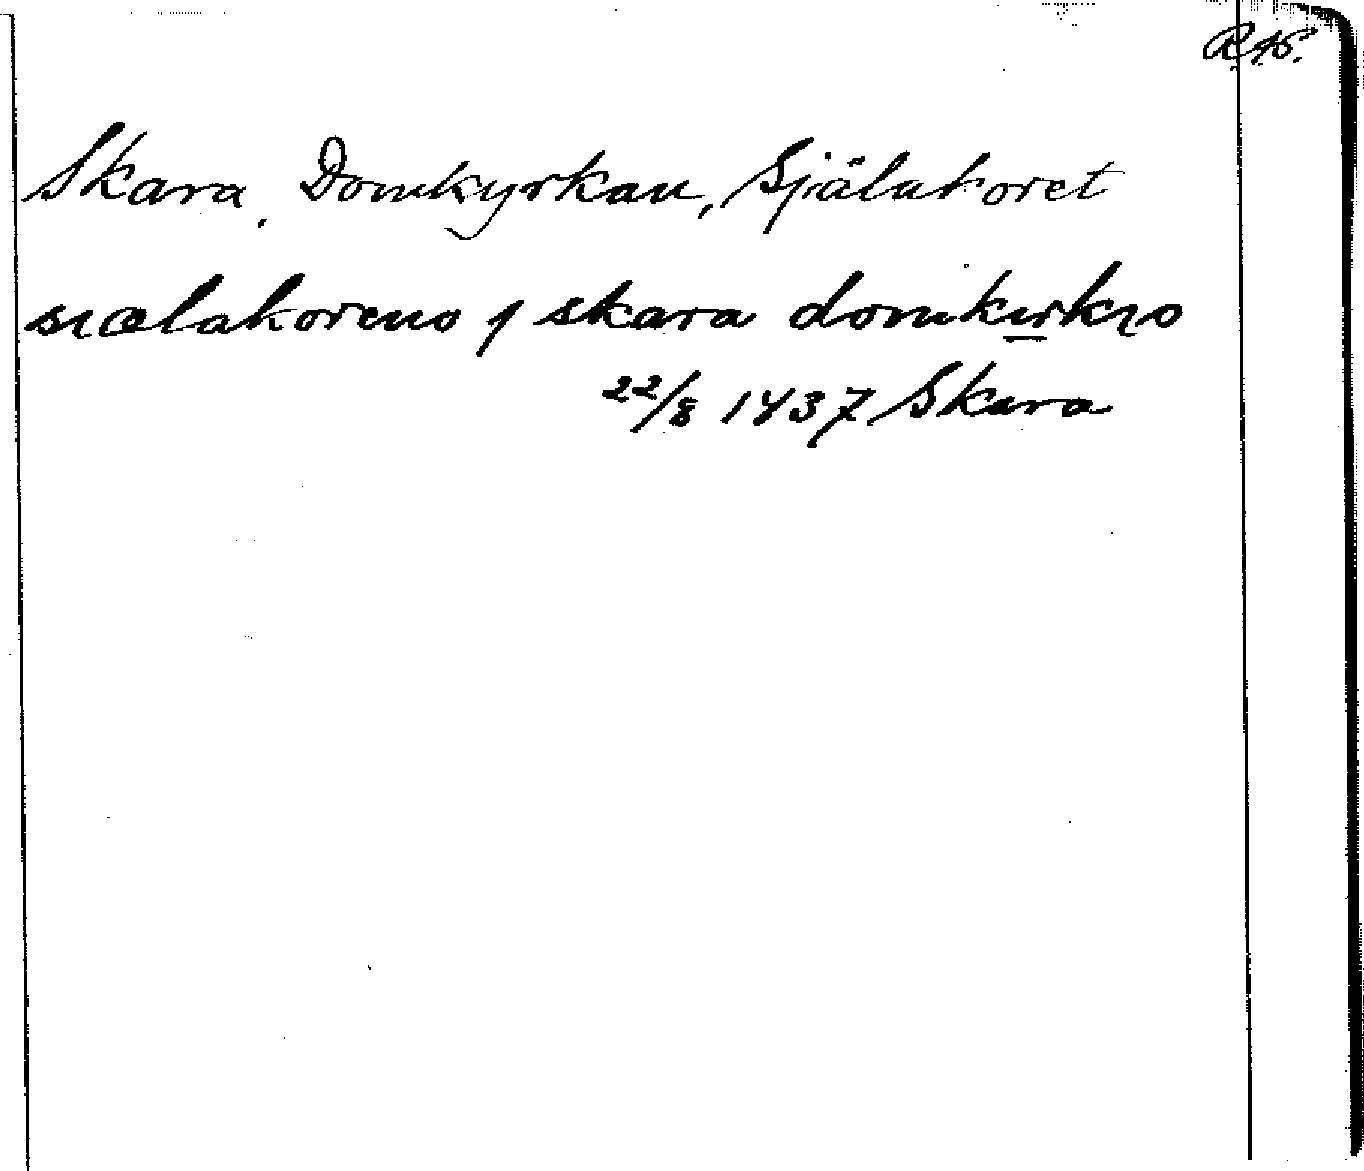 R.A.P.
Skara, Domkyrkan, Själakoret
siælakoreno j skara domkirkio
22/8 1437 Skara